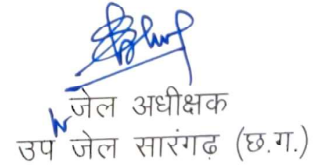 जेल अधीक्षक
उप जेल सारंगढ़ (छ.ग.)